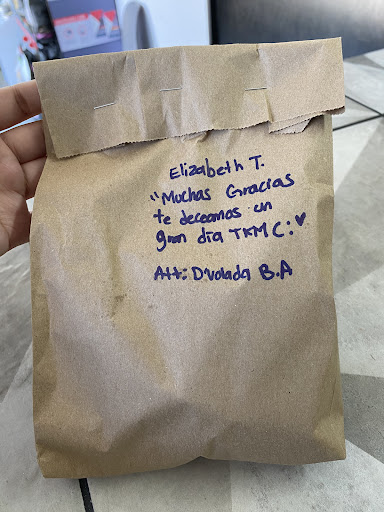 Elizabeth T.
"Muchas Gracias
te deceamos un
gran día TKM C:♥
Att: D'volada B.A